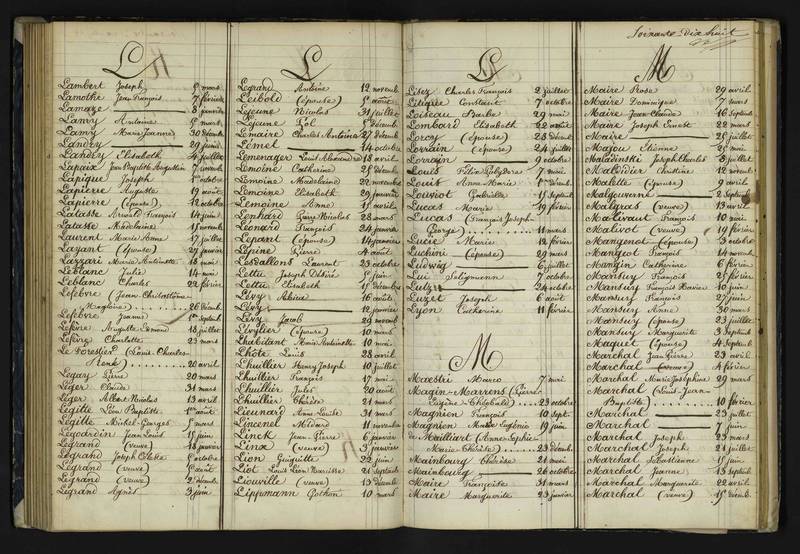 Soixante-Dix huit
L
Lambert Joseph 5 mars
Lamothe Jean François 7 février
Lamaze 8 janvier
Lamry Antoine 5 mars
Lamry Marie Jeanne 30 décemb
Landry 29 juin
Landry Elisabeth 4 juillet
Lapaix Jean Baptiste Augustin 7
Lapique Joseph octobre
Lapierre Auguste 19 août
Lapierre (épouse) 12 octobre
Latasse Arnould François 14 juin
Latasse Madelaine 15 novemb
Laurent Marie Anne 17 juillet
Layant (épouse) 27 janvier
Lazzari Marie Antoinette 18 mai
Leblanc Julie 14 mai
Leblanc Charles 22 février
Lefebvre (Jean Christostôme
26 décemb
Lefebvre Jeanne
Lefèvre Auguste Edmond 18 juillet
Lefèvre Charlotte 23 mars
Le Forestier (Louis Charles
20 avril
Legay Pierre 20 mai
Léger Claude 31 mars
Léger Albert Nicolas 13 avril
Legille Léon Baptiste 1er août
Legille Michel Georges 5 mars
Legoardin Jean Louis 15 juin
Legrand (veuve) 18 janvier
Legrand Joseph octobre
Legrand (veuve) août
Legrand (veuve) 2 décemb
Legrand Agnès 3 juin
L
Legrand Antoine 12 novemb
Leibold (épouse) 5 août
Lejeune Nicolas 31 juillet
Lejeune Pol 5 décemb
Lemaire Charles Antoine 27 décemb
Lemel 14 octobre
Lemenager Louis Alexandre 18 avril
Lemoine Catherine 25 décemb
Lemoine Madelaine 22 novemb
Lemoine Elisabeth 29 janvier
Lemoine Anne 15 avril
Lenhard Gury Nicolas 28 mars
Léonard François 24 janvier
Lepant (épouse) 14 janvier
Lépine Pierre 4 août
Lesvallons Laurent 23 octobre
Lettu Joseph Désiré 5 juin
Lettu Elisabeth 15 décemb
Lévy Akiva 16 août
Lévy 12 janvier
Lévy Jacob 29 novemb
Lévylier (épouse) 10 mars
Lhabitant Marie Antoinette 10 mai
Lhôte Louis 28 avril
Lhuillier Henry Joseph 10 juillet
Lhuillier François 17 mai
Lhuillier Jules 20 août
Lhuillier Thérèse 21 mars
Lieunard Anne Louise 31 mars
Lincenel Médard 11 novemb
Linck Jean Pierre 6 janvier
Linx (veuve) 3 janvier
Lion Guiguitte 22 juin
Liot Louis Léon Narcisse 21 septemb
Liouville (veuve) 13 décemb
Lippmann Gothon 10 mars
L
Lisez Charles François 2 juillet
Litique Constant 7 octobre
Loiseau Barbe 29 mai
Lombard Elisabeth 22 août
Lorcy (épouse) 28 décemb
Lorrain (épouse) 24 juillet
Lorrain 9 octobre
Louis Félix Polydore 7 mai
Louis Anne Marie 1er décemb
Louviot Gabrielle 15 septemb
Lucas Marie 19 février
Lucas (François Joseph
George) 11 mars
Lucie Marie 12 février
Luchini (épouse) 29 mars
Ludwig 6 juillet
Lui Seligmann 7 octobre
Lutz 24 octobre
Luzet Joseph 6 août
Lyon Catherine 11 février
M
Maestri Marco 7 mai
Magin-Marrens (Pierre
Eugène Théophile) 23 octobre
Magnien François 10 sept
Magnien Marie Eugénie 19 juin
de Mailliart (Anne Sophie
Marie Thérèse) 23 décemb
Mainbourg Thérèse 21 mai
Mainbourg 26 octobre
Maire Françoise 31 mars
Maire Marguerite 23 janvier
M
Maire Rose 29 avril
Maire Dominique 7 mars
Maire Jean Claude 16 Septemb
Maire Joseph Ernest 22 mars
Maire 25 juillet
Majou Etienne 25 mai
Maladinski Joseph Charles 8 juillet
Malaidier Christine 12 novemb
Malette (épouse) 9 avril
Malgenim 2 Septemb
Malgras (veuve) 13 avril
Malivaut François 10 mai
Malivot (veuve) 19 février
Mangenot (épouse) 3 octobre
Mangeot François 14 novemb
Mangin Catherine 6 février
Mansuy François 25 février
Mansuy François Xavier 10 juin
Mansuy François 27 juin
Mansuy Anne 30 mars
Mansuy (épouse) 23 juillet
Mansuy Marguerite 3 Septemb
Maquet (épouse) 4 Septemb
Marchal Jean Pierre 23 avril
Marchal (veuve) 4 février
Marchal Marie Joséphine 29 mars
Marchal (Louis Jean
Baptiste) 10 février
Marchal 23 juillet
Marchal 7 juin
Marchal Joseph 23 mars
Marchal Joseph 21 juillet
Marchal Sébastienne 15 juin
Marchal Jeanne 13 septemb
Marchal Marguerite 22 avril
Marchal (veuve) 15 décemb